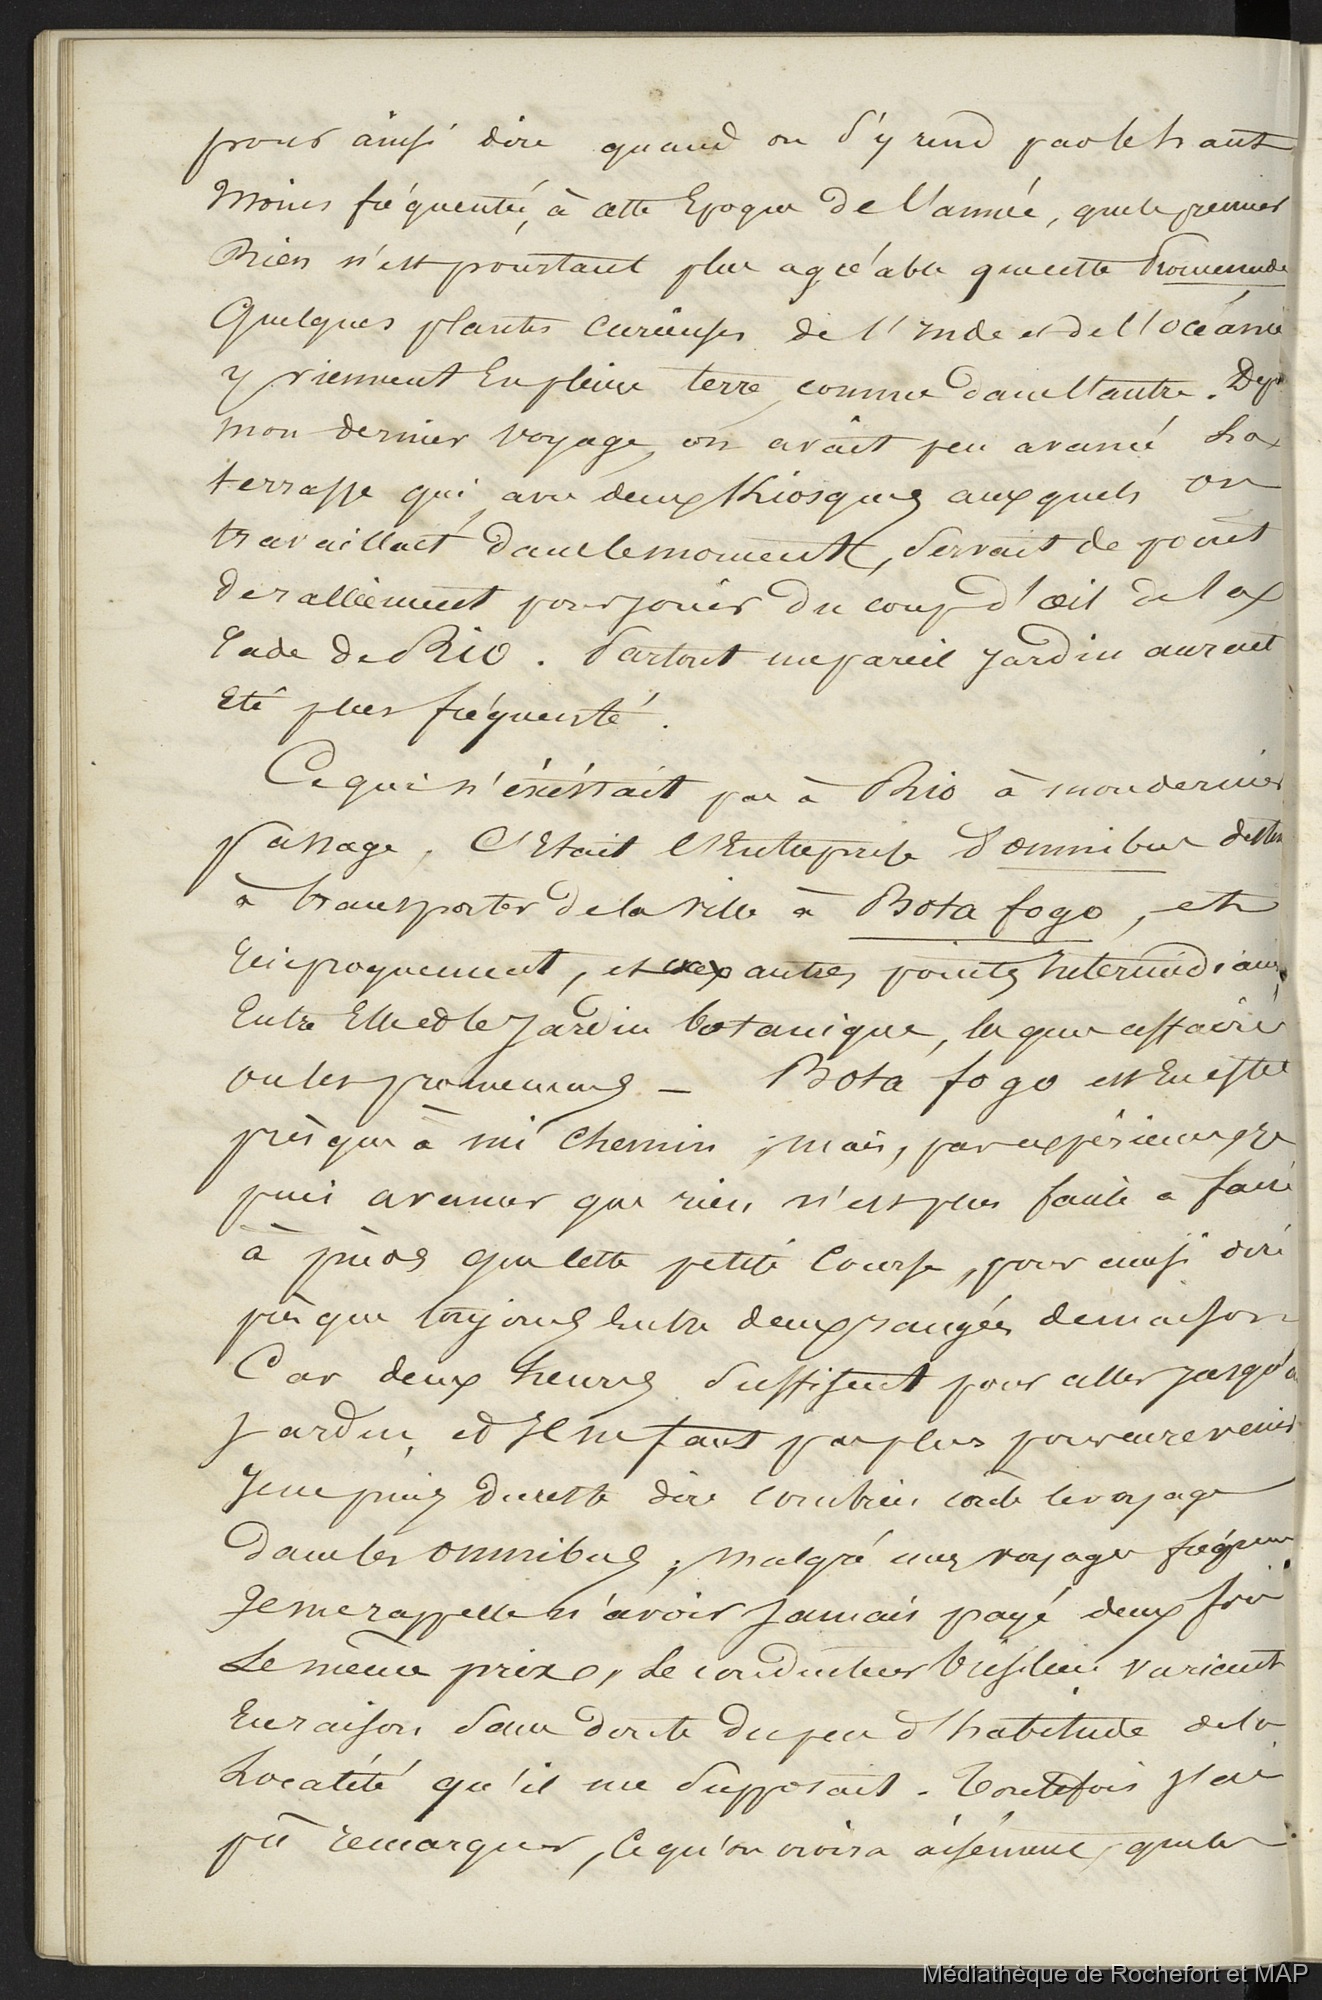 pour ainsi dire quand on s'y rend par le haut
Moins fréquenté, à cette Epoque de l'année, que le premier
Rien n'est pourtant plus agréable que cette Promenade
Quelques plantes curieuses de l'Inde et de l'océanie
y viennent En pleine terre, comme dans l'autre. Depuis
mon dernier voyage, on avait peu avancé La
terrasse qui, avec deux Kiosques auxquels on
travaillait dans le moment, servait de point
de ralliement pour jouir du coup d'œil de la
rade de Rio. Partout un pareil jardin aurait
Eté plus fréquenté.
Ce qui n'éxistait pas à Rio à mon dernier
passage, C'Etait l'Entreprise d'omnibus destinés
à transporter de la ville à Bota fogo, et
réciproquement, et aux autres points Intermédiaires
Entre Elle et le Jardin botanique, les gens affairés
ou les promeneurs - Bota fogo est En effet
présque à mi chemin, mais, par expérience, je
puis avancer que rien n'est plus facile à faire
à pieds que cette petite Course, pour ainsi dire
présque toujours Entre deux rangées de maisons
Car deux heures suffisent pour aller jusqu'au
Jardin, et Il n'en faut pas plus pour en revenir
Je ne puis du reste dire combien coûte le voyage
dans les omnibus, malgré mes voyages fréquens
Je me rappelle n'avoir Jamais payé deux fois
Le même prix, Le conducteur brésilien variant
En raison sans doute du peu d'habitude de la
Localité qu'il me supposait. Toutefois J'ai
pû remarquer, Ce qu'on croira aisément, que les
Médiathèque de Rochefort et MAP